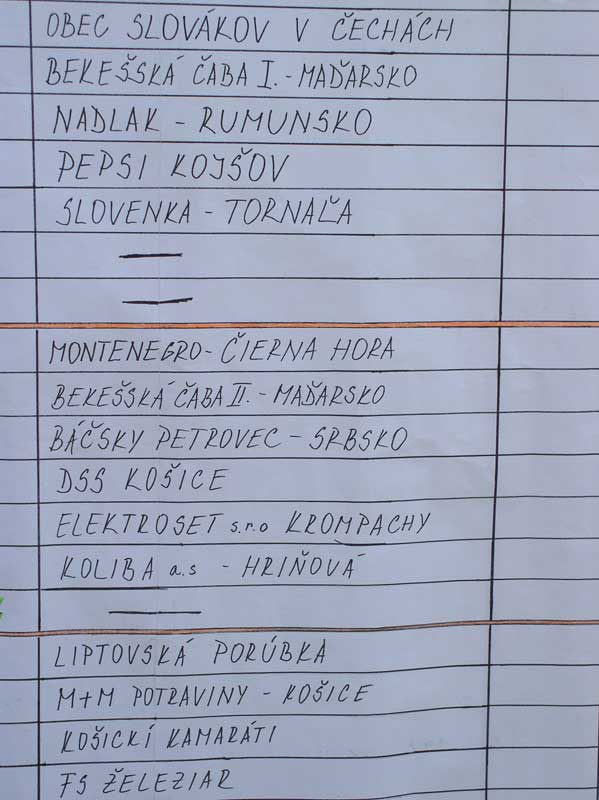 OBEC SLOVÁKOV V ČECHÁCH
BEKEŠSKÁ ČABA I. - MAĎARSKO
NADLAK - RUMUNSKO
PEPSI KOJŠOV
SLOVENKA - TORNAĽA
MONTENEGRO - ČIERNA HORA
BEKEŠSKÁ ČABA II. - MAĎARSKO
BÁČSKY PETROVEC - SRBSKO
DSS KOŠICE
ELEKTROSET s.r.o KROMPACHY
KOLIBA a.s - HRIŇOVÁ
LIPTOVSKÁ PORÚBKA
M+M POTRAVINY - KOŠICE
KOŠICKÍ KAMARÁTI
FS ŽELEZIAR